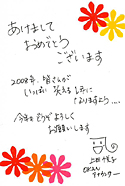 あけまして
おめでとう
ございます
2008年、皆さんが
いっぱい笑える年に
なりますよう…
今年もどうぞよろしく
お願いします
上田悦子